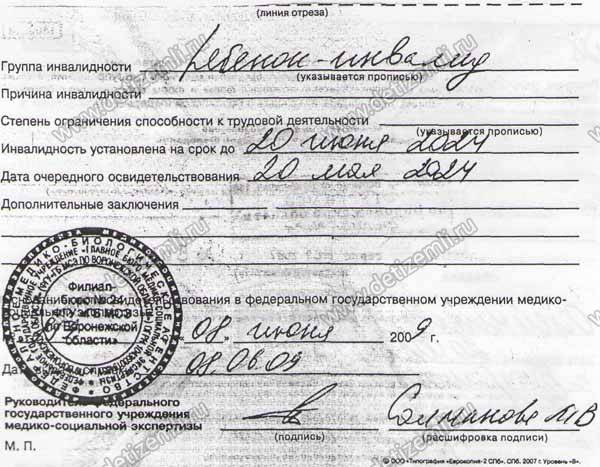 (линия отреза)
Группа инвалидности Ребенок-инвалид
(указывается прописью)
Причина инвалидности
Степень ограничения способности к трудовой деятельности
(указывается прописью)
Инвалидность установлена на срок до 20 июня 2024
Дата очередного освидетельствования 20 мая 2024
Дополнительные заключения
Филиал
бюро № 24
ФГУ «ГБ МСЭ
по Воронежской
области»
освидетельствования в федеральном государственном учреждении медико-
«08» июня 2009 г.
08.06.09
Руководитель Федерального
государственного учреждения
медико-социальной экспертизы
(подпись)
Салманова МВ
(расшифровка подписи)
М. П.
© ООО «Типография «Еврокопия-2 СПб». СПб. 2007 г. Уровень «В».
www.detizemli.ru